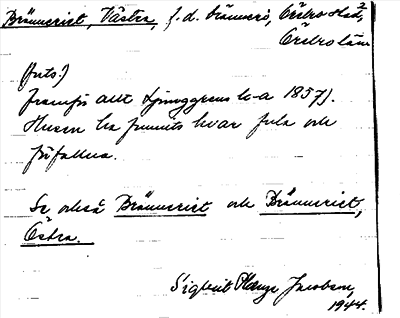 Bränneriet, Västra, f.d. bränneri, Örebro stad,
Örebro län
(forts.)
framgår allt Ljunggrens k-a 1857).
Husen ha funnits kvar fula och
förfallna.
Se också Bränneriet och Bränneriet,
Östra.
Sigbrit Plange Jacobson,
1944.